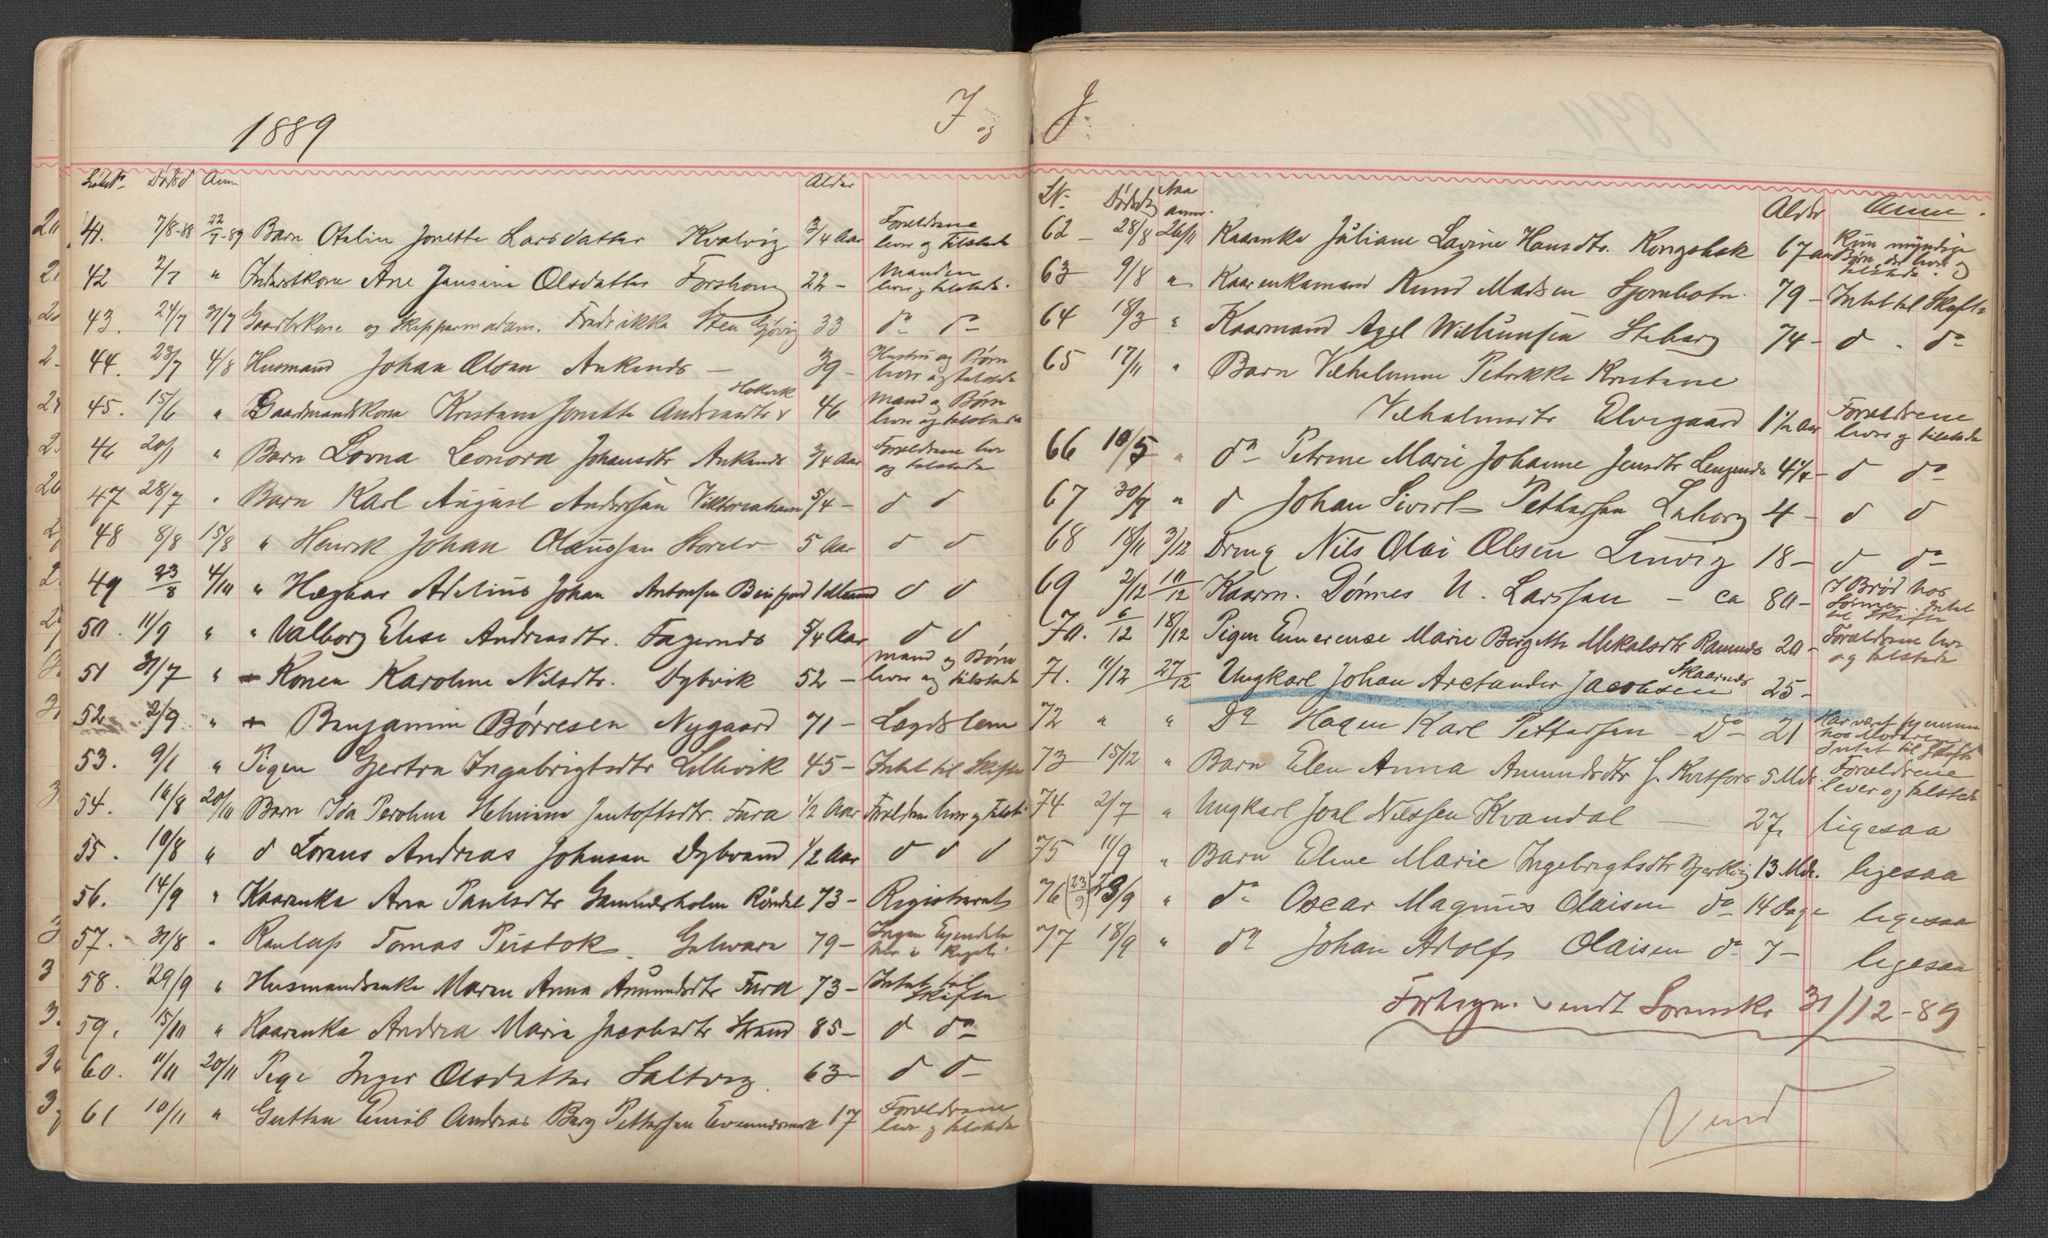 1889
I og
Løbe No Dødsd Anm Alder
41. 7/8-88 22/7-89 Barn Otelie Jonette Larsdatter Kvalvig 3/4 Aar Forældrene lever og tilstede
42 2/7 " Inderstkone Ane Jensine Olsdatter 22 - Manden lever og tilstede.
43. 24/7 31/7 Gaardbr.kone og Skippermadam. Fredrikke Sten Gjøvig 33 do do
44. 23/7 4/8 Husmand Johan Olsen Ankenes - 39 - Hustru og Børn lever og tilstede
45. 15/6 " Gaardmandskone Kristine Jonette Andreasdtr 46 mand og Børn lever og tilstede
46 20/1 " Barn Lovna Leonora Johansdtr Ankenes 3/4 Aar Forældrene lever og tilstede
47 28/7 " Barn Karl August Andersen Viktoriahavn 5/4 - d d
48 8/8 15/8 " Henrik Johan Olaussen 5 Aar d d
49 23/8 4/10 " Hegbar Adelius Johan Antonsen Beisfjord d d
50. 11/9 " " Valborg Elise Andreasdtr. Fagernes 5/4 Aar d d
51 31/7 " - Konen Karoline Nilsdtr. Dybvik 52 - mand og Børn lever og tilstede
52 2/9 " - Benjamin Børresen Nygaard 71 - Lægdslem
53. 9/1 " Pigen Gjertra Ingebrigtsdtr Lillevik 45 - Intet til Skifte
54. 10/8 20/10 Barn Ida Perolina Helmine Jentoftsdtr. Fura 1/2 Aar Forældrene lever og tilst.
55. 10/8 " d Lorens Andreas Johnsen Dybvand 1/2 Aar d d d
56. 14/9 " Kaarenke Ana Paulsdtr 73 - Registreret
57. 31/8 " Tomas Pustok. Gelivara 79 - Ingen Eiendele
58. 29/9 " Husmandsenke Maren Anna Amundsdtr Fura 73 - Intet til Skifte
59. 15/10 " Kaarenke Andrea Marie Jacobsdtr Strand 85 - d do
60. 11/11 20/11 Pige Inger Olsdatter Saltvig. 63 - d d -
61 10/11 " Gutten Emil Andreas Berg Pettersen Evenesmark 17 Forældrene lever og tilstede
J.
No Dødsdag Naar anm. Alder Anm.
62 - 28/8 26/11 Kaarenke Juliane Lavine Hansdtr. Kongsbak 67 aar Kun myndige Børn, der lever og tilstede.
63 9/8 " Kaarenkemand Knud Madsen 79 - Intet til Skifte
64 18/3 " Kaarmand Axel Wilhumsen Steberg 74 - d. do
65 17/11 " Barn Vilhelmine Petrikke Kristine
Vilhelmsdtr Elvegaard 1 1/2 Aar Forældrene lever og tilstede
66 10/5 " do Petrine Marie Johanne Jensdtr Lengenes 4 1/4 - d do
67 30/9 " d Johan Sivert Pettersen Laberg 4 - d d
68 18/11 3/12 Dreng Nils Olai Olsen Lenvig 18 - d do
69 2/12 10/12 Kaarm. Dønnes N. Larssen - ca 80 - I Brød hos Sønnen. Intet til Skifte
70. 6/12 18/12 Pigen Emerense Marie Bergette Mikalsdtr Ramnes 20 - Forældrene lever og tilstede
71. 11/12 27/12 Ungkarl Johan Arctander Jacobsen Skaarnes 25 -
72 " " Do Hagen Karl Pettersen - Do - 21 Har været hjemme hos Moderen Intet til Skifte
73 15/12 " Barn Elen Anna Amundsdtr 5 Mdr. Forældrene lever og tilstede
74. 2/7 " Ungkarl Joel Nilssen Kvandal - 27, ligesaa
75 11/9 " Barn Eline Marie Ingebrigtsdtr Bjerkvig 13 Mdr. ligesaa
76 (23/9) 23/9 " do Oscar Magnus Olaisen do 14 Dage ligesaa
77 18/9 " do Johan Adolf Olaisen do 7 - ligesaa
Fortegn. sendt Sorensk. 31/12-89
Vend